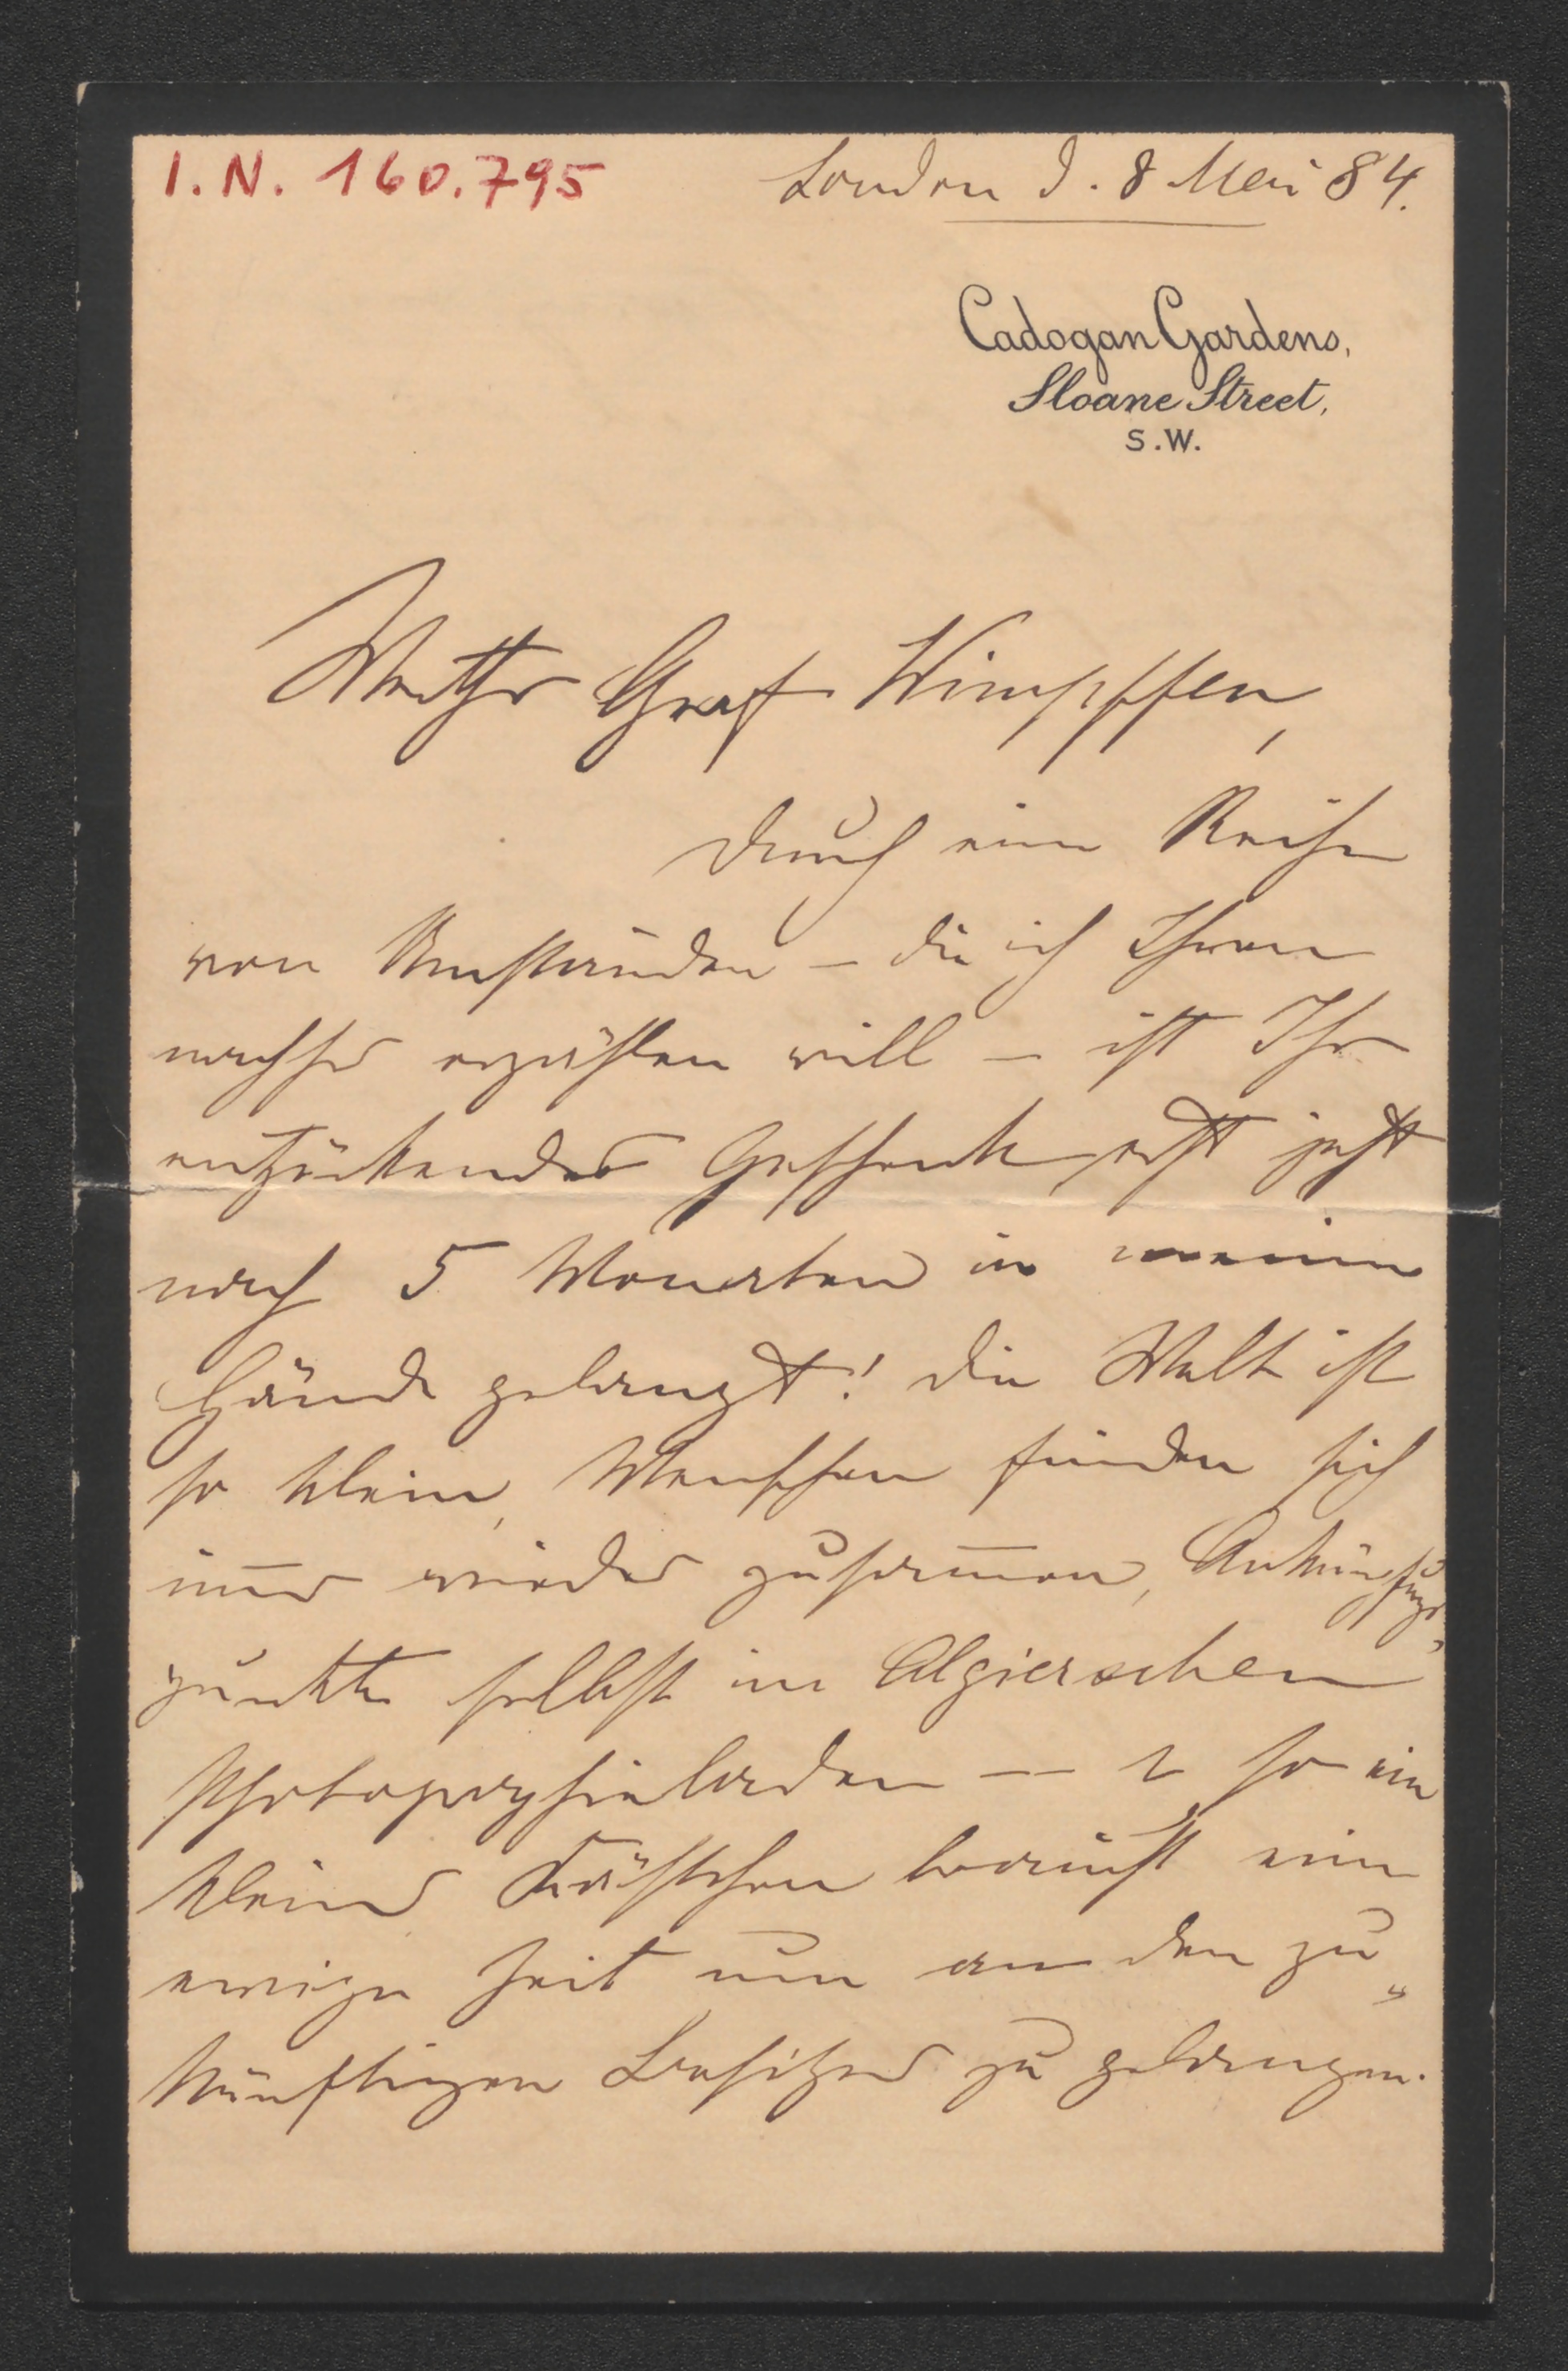 I. N. 160.795
London d. 8 Mai 84.
Cadogan Gardens,
Sloane Street,
S.W.
Werther Graf Wimpffen,
durch eine Reihe
von Umständen – die ich Ihnen
nachher erzählen will – ist Ihr
entzückendes Geschenk erst jetzt
nach 5 Monaten in meine
Hände gelangt! Die Welt ist
so klein, Menschen finden sich
im̄er wieder zusam̄en, Anknüpfungs„
punkte selbst im Algierschen
Photographieladen — & so ein
kleines Kästchen braucht eine
ewige Zeit um an den zu„
künftigen Besitzer zu gelangen.